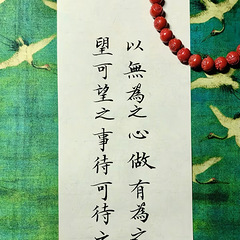 以無為之心做有為之
望可望之事待可待之